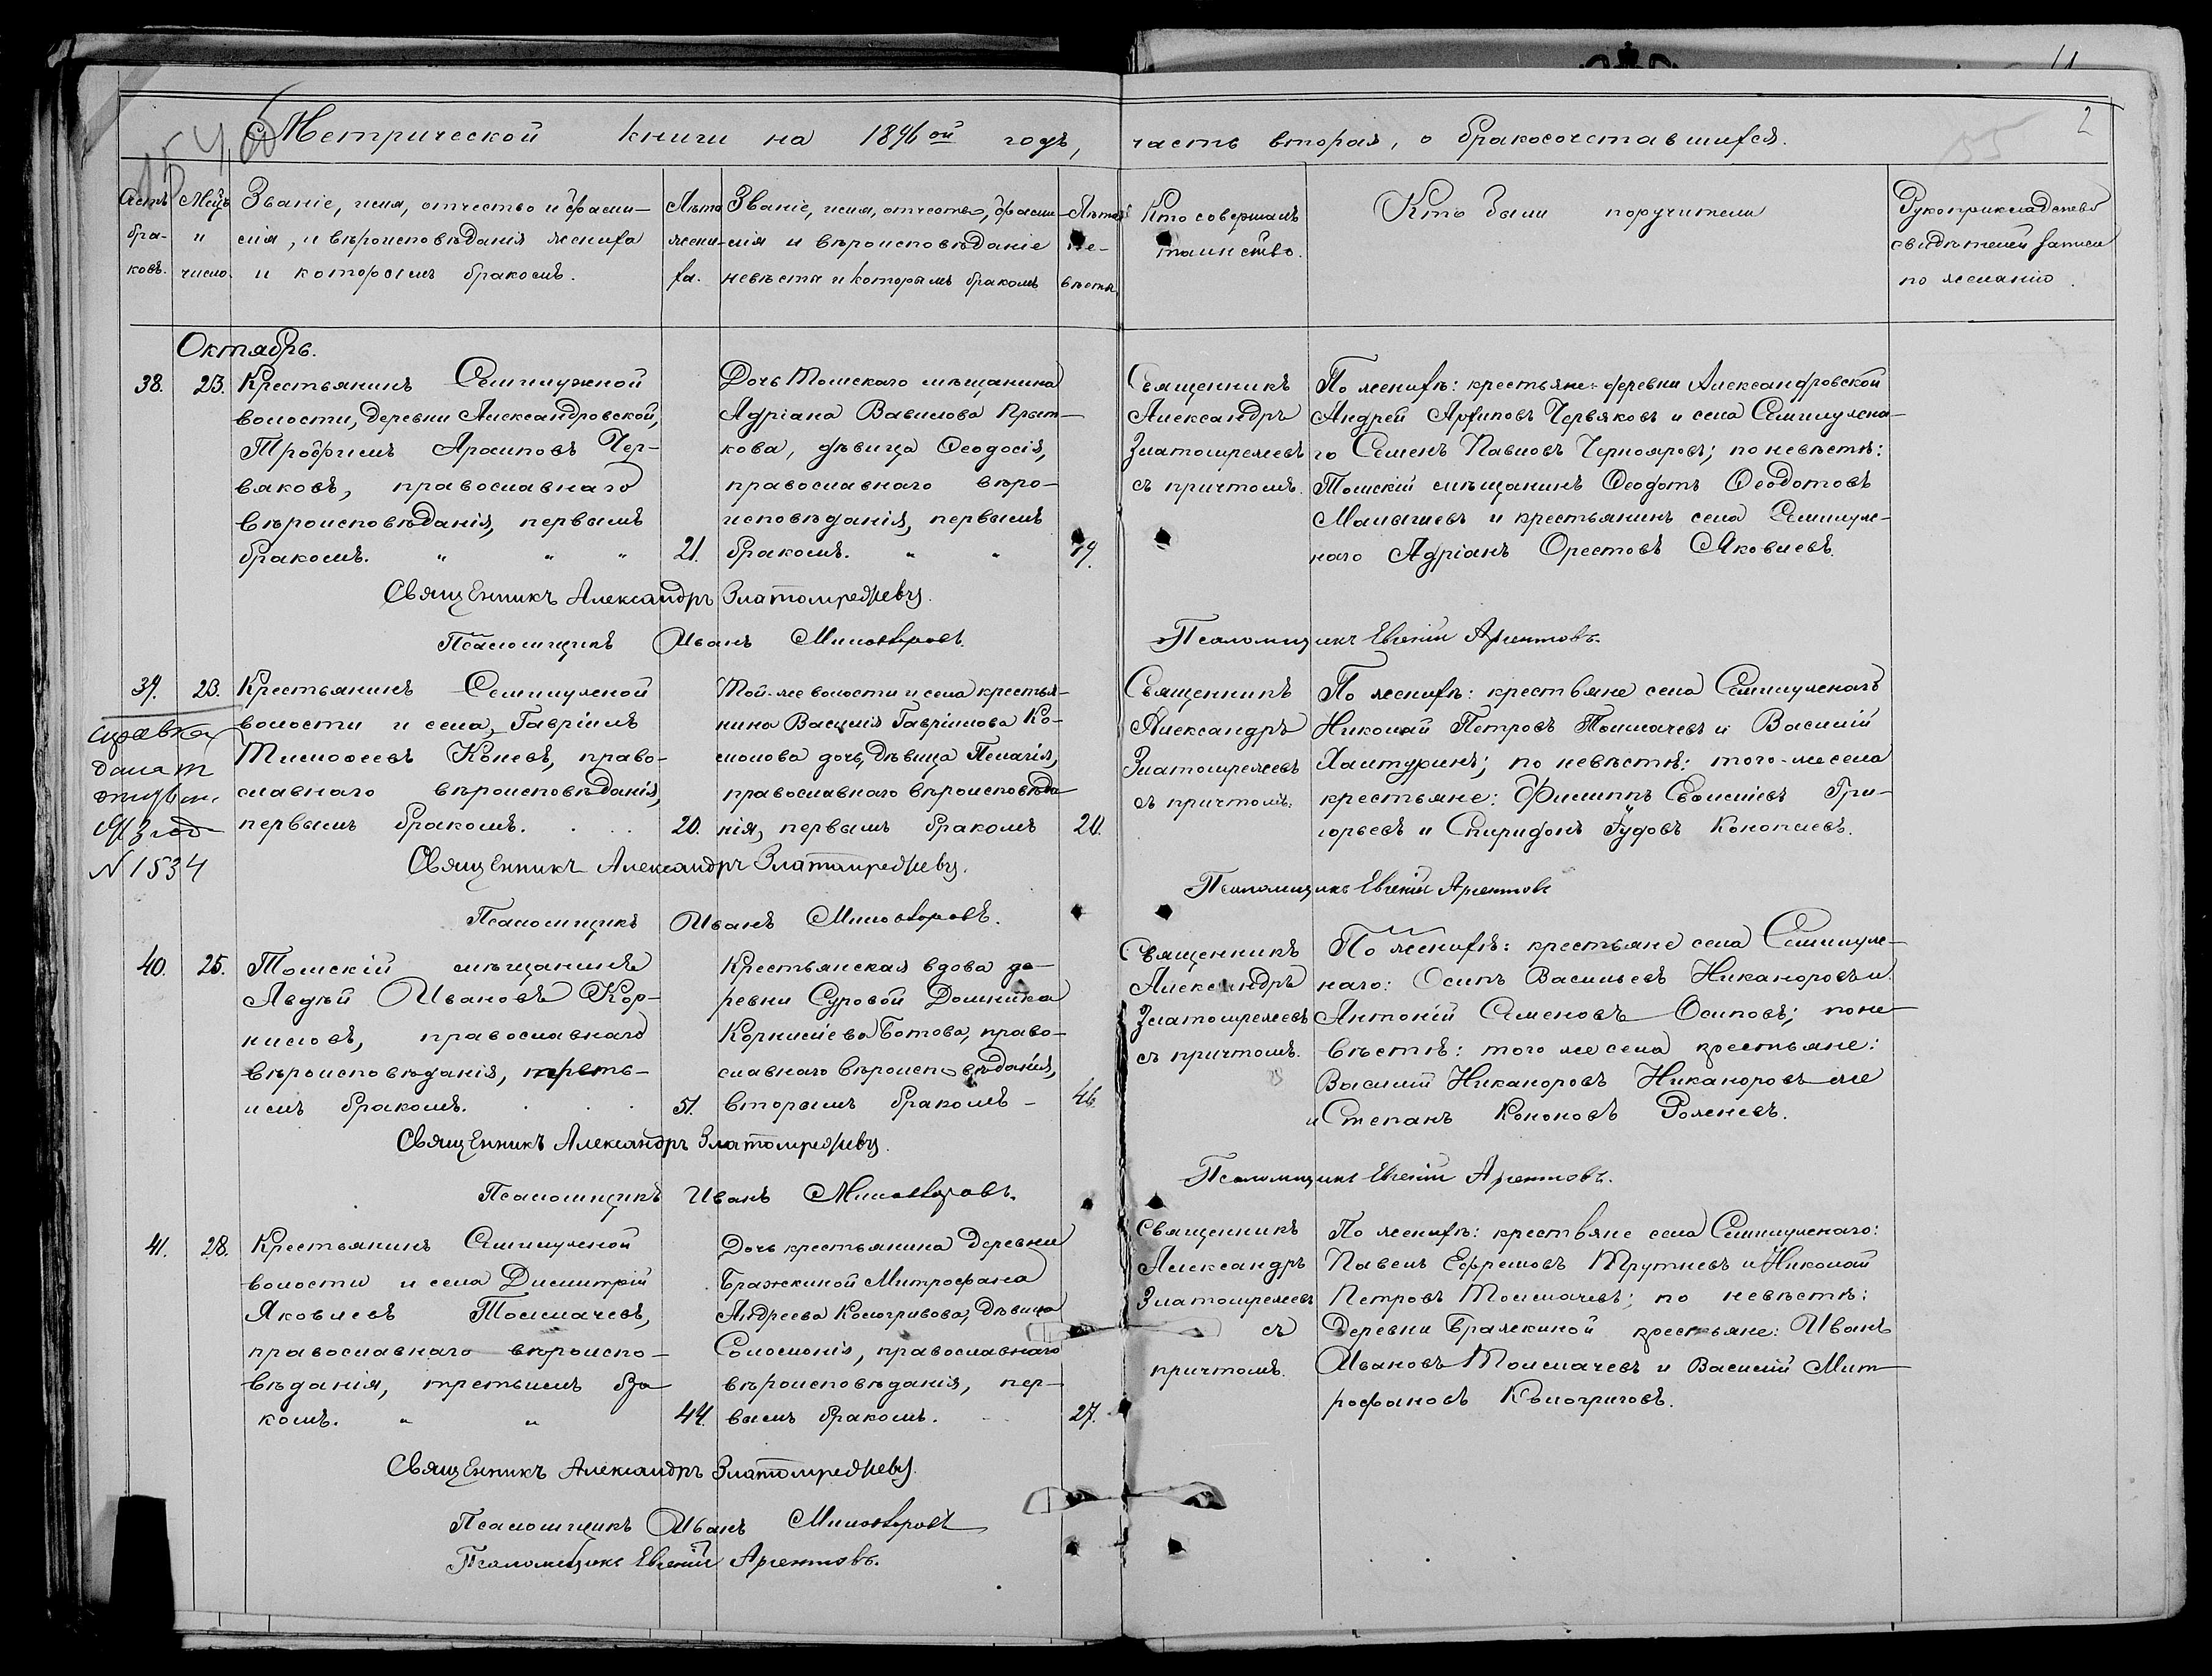 Метрической книги на 1896ой годъ, часть вторая, о бракосочетавшихся.
2
Счетъ бра- ковъ.
Мсцъ и число.
Званіе, имя, отчество и фами-
лія, и вѣроисповѣданія жениха
и которымъ бракомъ.
Лѣта жени- ха.
Званіе, имя, отчество, фами-
лія и вѣроисповѣданіе
невѣсты и которымъ бракомъ
Лѣта не- вѣсты.
Кто совершалъ
таинство.
Кто были поручители
Рукоприкладство
свидѣтелей записи
по желанію.
Октябрь.
38. 23.
Крестьянинъ Семилужной
волости, деревни Александровской,
Трофимъ Архиповъ Чер-
вяковъ, православнаго
вѣроисповѣданія, первымъ
бракомъ. " " " 21.
Дочь Томскаго мѣщанина
Адріана Вавилова Прыт-
кова, дѣвица Ѳеодосія,
православнаго вѣро-
исповѣданія, первымъ
бракомъ. " " 19.
Священникъ
Александръ
Златомрежевъ
съ причтомъ.
По женихѣ: крестьяне деревни Александровской
Андрей Архиповъ Червяковъ и села Семилужна-
го Семенъ Павловъ Чернояровъ; по невѣстѣ:
Томскій мѣщанинъ Ѳеодотъ Ѳеодотовъ
Малышевъ и крестьянинъ села Семилуж-
наго Адріанъ Орестовъ Яковлевъ.
Священникъ Александръ Златомрежевъ.
Псаломщикъ Иванъ Миловзоровъ.
Псаломщикъ Евгеній Аргентовъ.
39. 23.
справка
дана
N 1534
Крестьянинъ Семилужной
волости и села, Гавріилъ
Тимоѳеевъ Коневъ, право-
славнаго вѣроисповѣданія,
первымъ бракомъ. . . . 20.
Той-же волости и села крестья-
нина Василія Гавріилова Ко-
молова дочь, дѣвица Пелагія,
православнаго вѣроисповѣда
нія, первымъ бракомъ 20.
Священникъ
Александръ
Златомрежевъ
съ причтомъ.
По женихѣ: крестьяне села Семилужнаго
Николай Петровъ Толмачевъ и Василій
Халтуринъ; по невѣстѣ: того-же села
крестьяне: Филиппъ Гри-
горьевъ и Спиридонъ Коноплевъ.
Священникъ Александръ Златомрежевъ.
Псаломщикъ Евгеній Аргентовъ
Псаломщикъ Иванъ Миловзоровъ.
40. 25.
Томскій мѣщанинъ
Авдѣй Ивановъ Кор-
ниловъ, православнаго
вѣроисповѣданія, треть-
имъ бракомъ. . . . 51.
Крестьянская вдова де-
ревни Суровой Домника
Корнилiева Ботова, право-
славнаго вѣроисповѣданія,
вторымъ бракомъ - 46.
Священникъ
Александръ
Златомрежевъ
съ причтомъ.
По женихѣ: крестьяне села Семилуж-
наго: Осипъ Васильевъ Никаноровъ и
Антоній Семеновъ Осиповъ; по не-
вѣстѣ: того же села крестьяне:
Василій Никаноровъ Никаноровъ же
и Степанъ Кононовъ Роженевъ.
Священникъ Александръ Златомрежевъ.
Псаломщикъ Иванъ Миловзоровъ.
Псаломщикъ Евгеній Аргентовъ.
41. 28.
Крестьянинъ Семилужной
волости и села Димитрій
Яковлевъ Толмачевъ,
православнаго вѣроиспо-
вѣданія, третьимъ бра
комъ. " " 44.
Дочь крестьянина деревни
Бражкиной Митрофана
Андреева Кологривова, дѣвица
Соломонія, православнаго
вѣроисповѣданія, пер-
вымъ бракомъ. 27.
Священникъ
Александръ
Златомрежевъ
съ
причтомъ.
По женихѣ: крестьяне села Семилужнаго:
Павелъ Ефремовъ Трутневъ и Николай
Петровъ Толмачевъ; по невѣстѣ:
Деревни Бражкиной крестьяне: Иванъ
Ивановъ Толмачевъ и Василій Мит-
рофановъ Кологривовъ.
Священникъ Александръ Златомрежевъ.
Псаломщикъ Иванъ Миловзоровъ
Псаломщикъ Евгеній Аргентовъ.